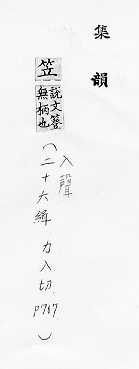 集韻
笠 說文簦無柄也
(入聲
二十六緝 力入切 P767)